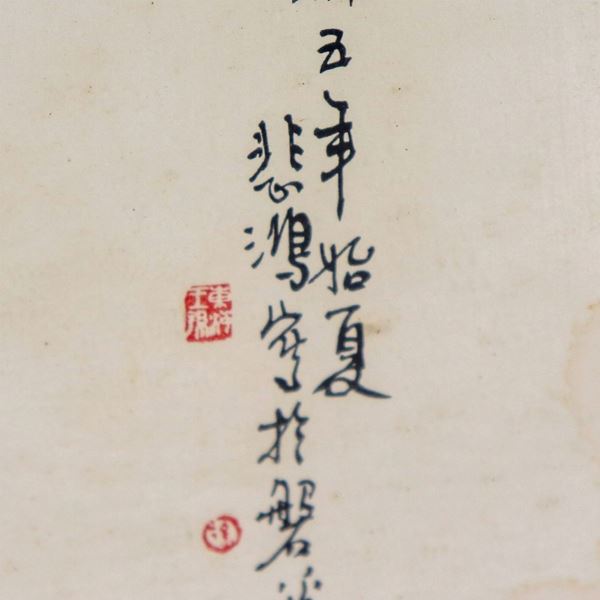 五年始夏
悲鴻寫於磐
東海王孫
徐